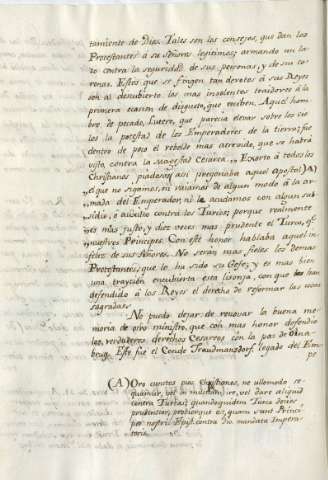 tamiento de Dios. Tales son los consejos, que dan los
Protestantes à sus Señores legitimos; armando un la-
zo contra la seguridad de sus personas, y de sus co-
ronas. Estos que se fingen tan devotos à sus Reyes
son al descubierto los mas insolentes traidores à la
primera ocasion de disgusto, que reciben. Aquel hom-
bre de pecado, Lutero, que parecia elevar sobre los cie-
los la potestad de los Emperadores de la tierra, fue
dentro de poco el rebelde mas atróz, que se habrá
visto, contra la Magestad Cesarea. „Exorto à todos los
Christianos piadosos (asi pregonaba aquel apostol) (A)
„el que no sigamos, ni vaiamos de algun modo à la ar-
„mada del Emperador, ni le acudamos con algun sub-
„sidio, ò auxilio contra los Turcos; porque realmente
„es mas justo, y diez veces mas prudente el Turco, que
„nuestros Principes. Con este honor hablaba aquel in-
feliz de sus Señores. No serán mas fieles los demas
Protestantes, que lo ha sido su Gefe; y es mas bien
una traycion encubierta esta lisonja, con que han
defendido à los Reyes el derecho de reformar las cosas
sagradas.
No puedo dejar de renovar la buena me-
moria de otro ministro, que con mas honor defendio
los verdaderos derechos Cesareos con la paz de Osna-
brug. Este fue el Conde Traudmansdorf, legado del Em-
pe
(A) Oro cunctos pios Christianos, ne ullomodo se-
quamur, vel in militiam ire, vel dare aliquid
contra Turcas; quandoquidem Turca decies
prudentior, probiorque est, quam sunt Princi-
pes nostri. Epist. contra duo mandata Impera-
toria.